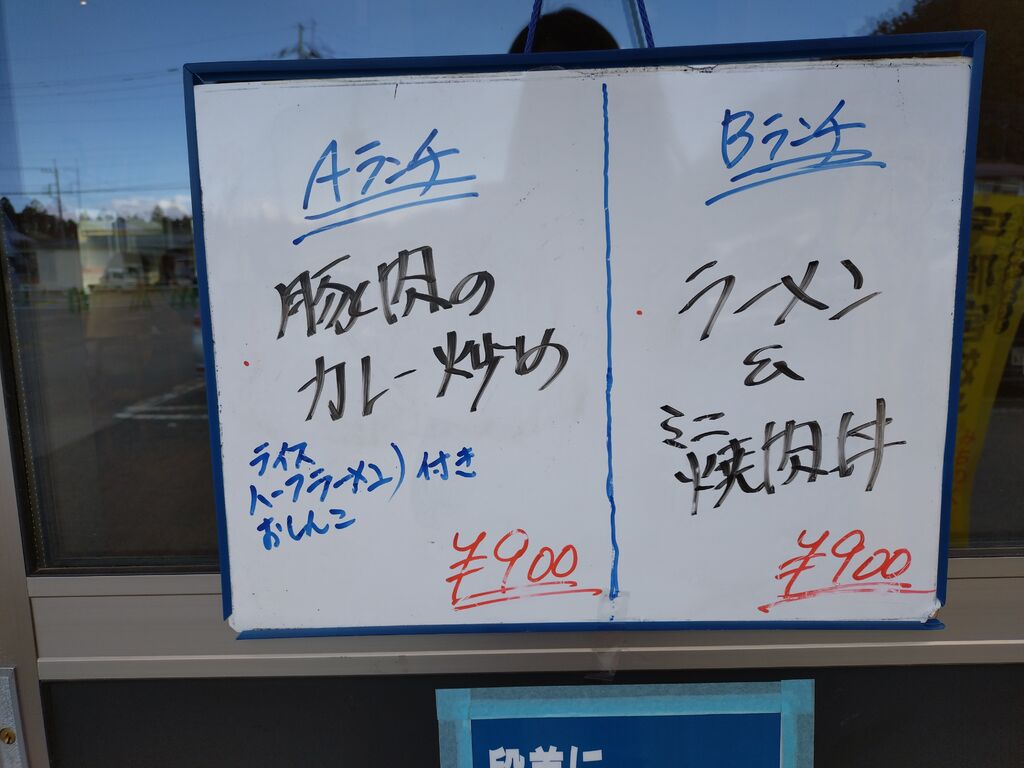 Aランチ
豚肉の
カレー炒め
ライス
ハーフラーメン)付き
おしんこ
¥900
Bランチ
ラーメン
&
ミニ
焼肉丼
¥900
段差に